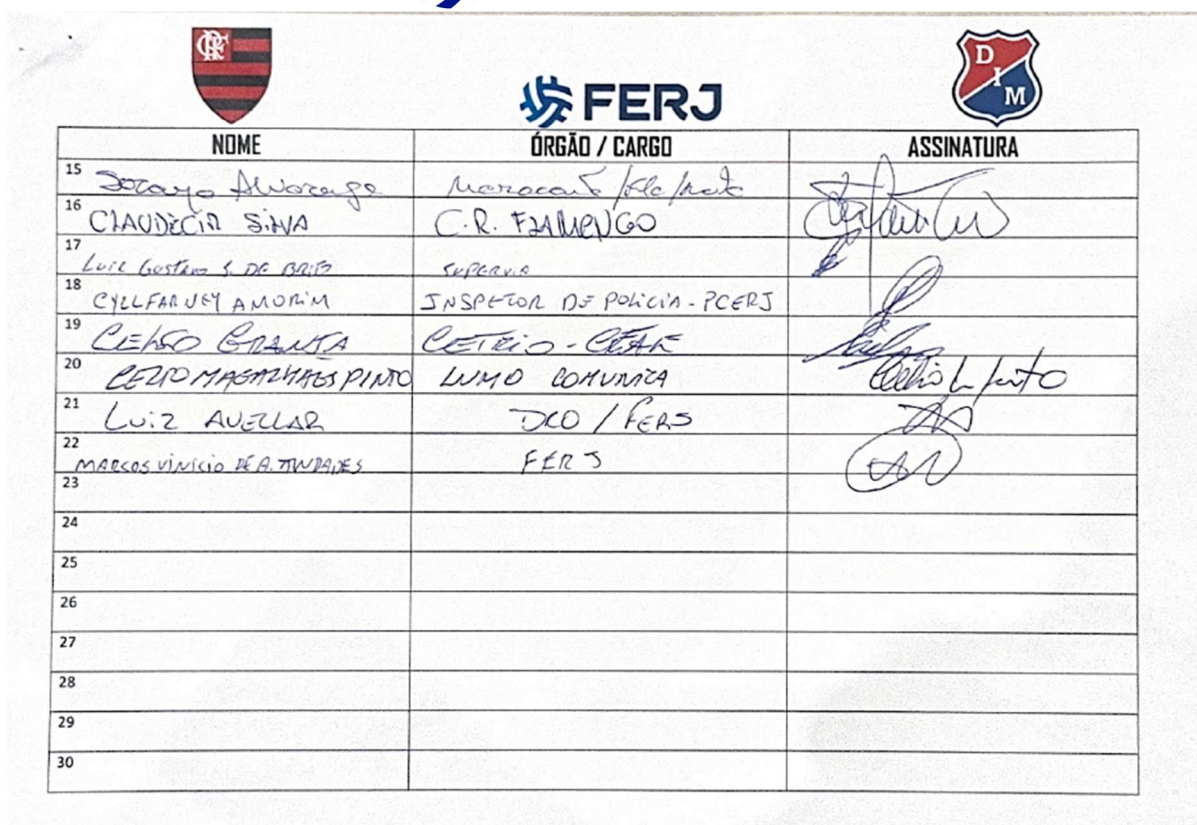 CRF
FERJ
D I M
NOME ÓRGÃO / CARGO ASSINATURA
15 Soraya Alvarenga Maracanã /Fla/
16 CLAUDECIR SILVA C.R. FLAMENGO
17 LUIZ GUSTAVO S. DE BRITO SUPERVIA
18 CYLLFARNEY AMORIM INSPETOR DE POLÍCIA - PCERJ
19 CELSO GRANJA CETRIO -
20 CELIO MAGALHAES PINTO LUMO COMUNICA
21 LUIZ AVELLAR DCO / FERJ
22 MARCOS VINICIO DE A. FERJ
23
24
25
26
27
28
29
30